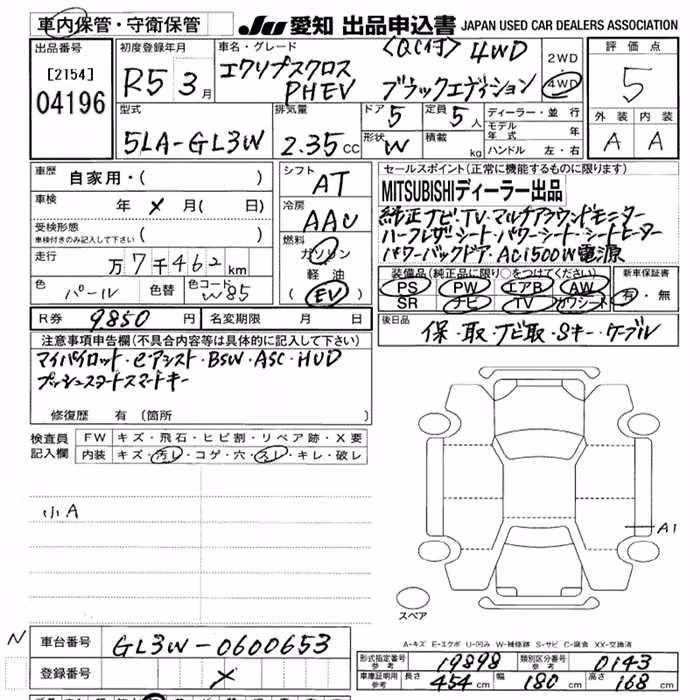 車内保管・守衛保管 JU 愛知 出品申込書 JAPAN USED CAR DEALERS ASSOCIATION
出品番号 [2154] 04196
初度登録年月 R5 3月
車名・グレード エクリプスクロス PHEV <QC付> 4WD ブラックエディション
2WD 4WD
評価点 5
型式 5LA-GL3W
排気量 2.35cc
ドア 5
定員 5人
形状 W
積載 kg
ディーラー・並行
モデル年式 年
ハンドル 左・右
外装 内装
A A
車歴 自家用・( )
車検 年 × 月( 日)
受検形態 車検付きのみ記入して下さい ( )
走行 万7千462km
色 パール 色替 色コード W85
シフト AT
冷房 AAC
燃料 ガソリン 軽油 (EV)
セールスポイント(正常に機能するものに限ります)
MITSUBISHIディーラー出品
純正ナビ・TV・マルチアラウンドモニター
ハーフレザーシート・パワーシート・シートヒーター
パワーバックドア・AC1500W電源
装備品(純正品に限り○をつけてください) 新車保証書
PS PW エアB AW 有・無
SR ナビ TV カワシート
R券 9850円 名変期限 月 日
後日品 保・取・ナビ取・Sキー・ケーブル
注意事項申告欄(不具合内容等は具体的に記入して下さい)
マイパイロット・eアシスト・BSW・ASC・HUD
プッシュスタートスマートキー
修復歴 有(箇所 )
検査員記入欄 FW キズ・飛石・ヒビ割・リペア跡・X要
内装 キズ・汚レ・コゲ・穴・スレ・キレ・破レ
小A
A1
スペア
A-キズ E-エクボ U-凹み W-補修跡 S-サビ C-腐食 XX-交換済
N
車台番号 GL3W-0600653
登録番号 ×
形式指定番号 参考 19898 類別区分番号 参考 0143
車庫証明用 参考 長さ 454cm 幅 180cm 高さ 168cm